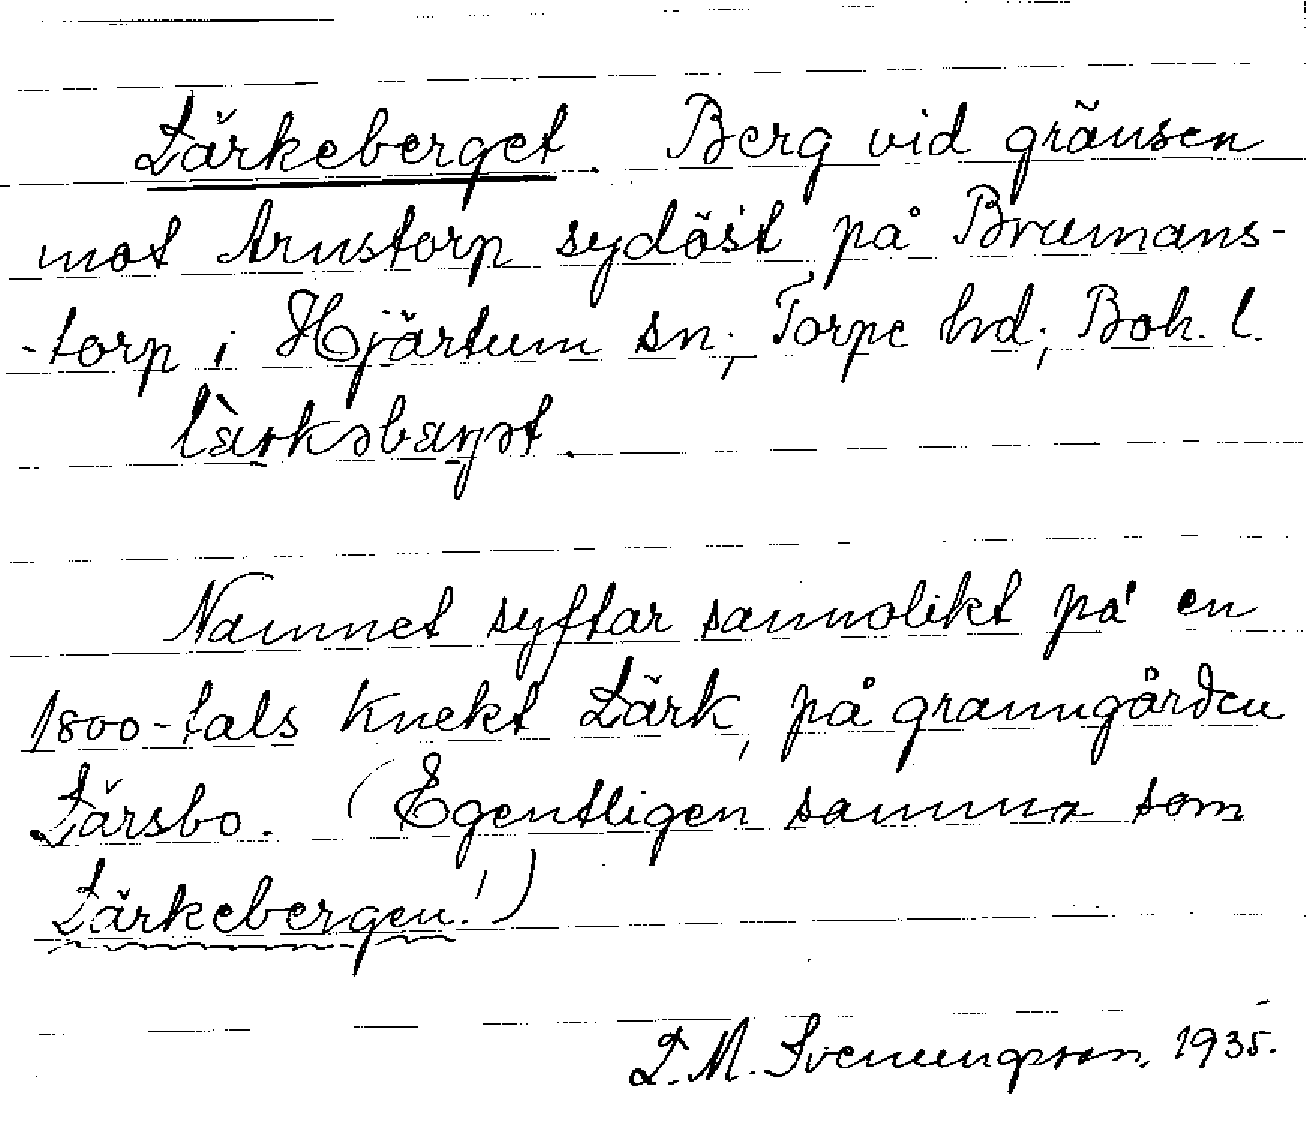 Lärkeberget. Berg vid gränsen
mot Arnstorp sydöst på Brumans-
-torp i Hjärtum sn; Torpe hd; Boh. l.
Namnet syftar sannolikt på en
1800-tals knekt Lärk, på granngården
Lärsbo. (Egentligen samma som
Lärkebergen!)
L. M. Svenungsson, 1935.